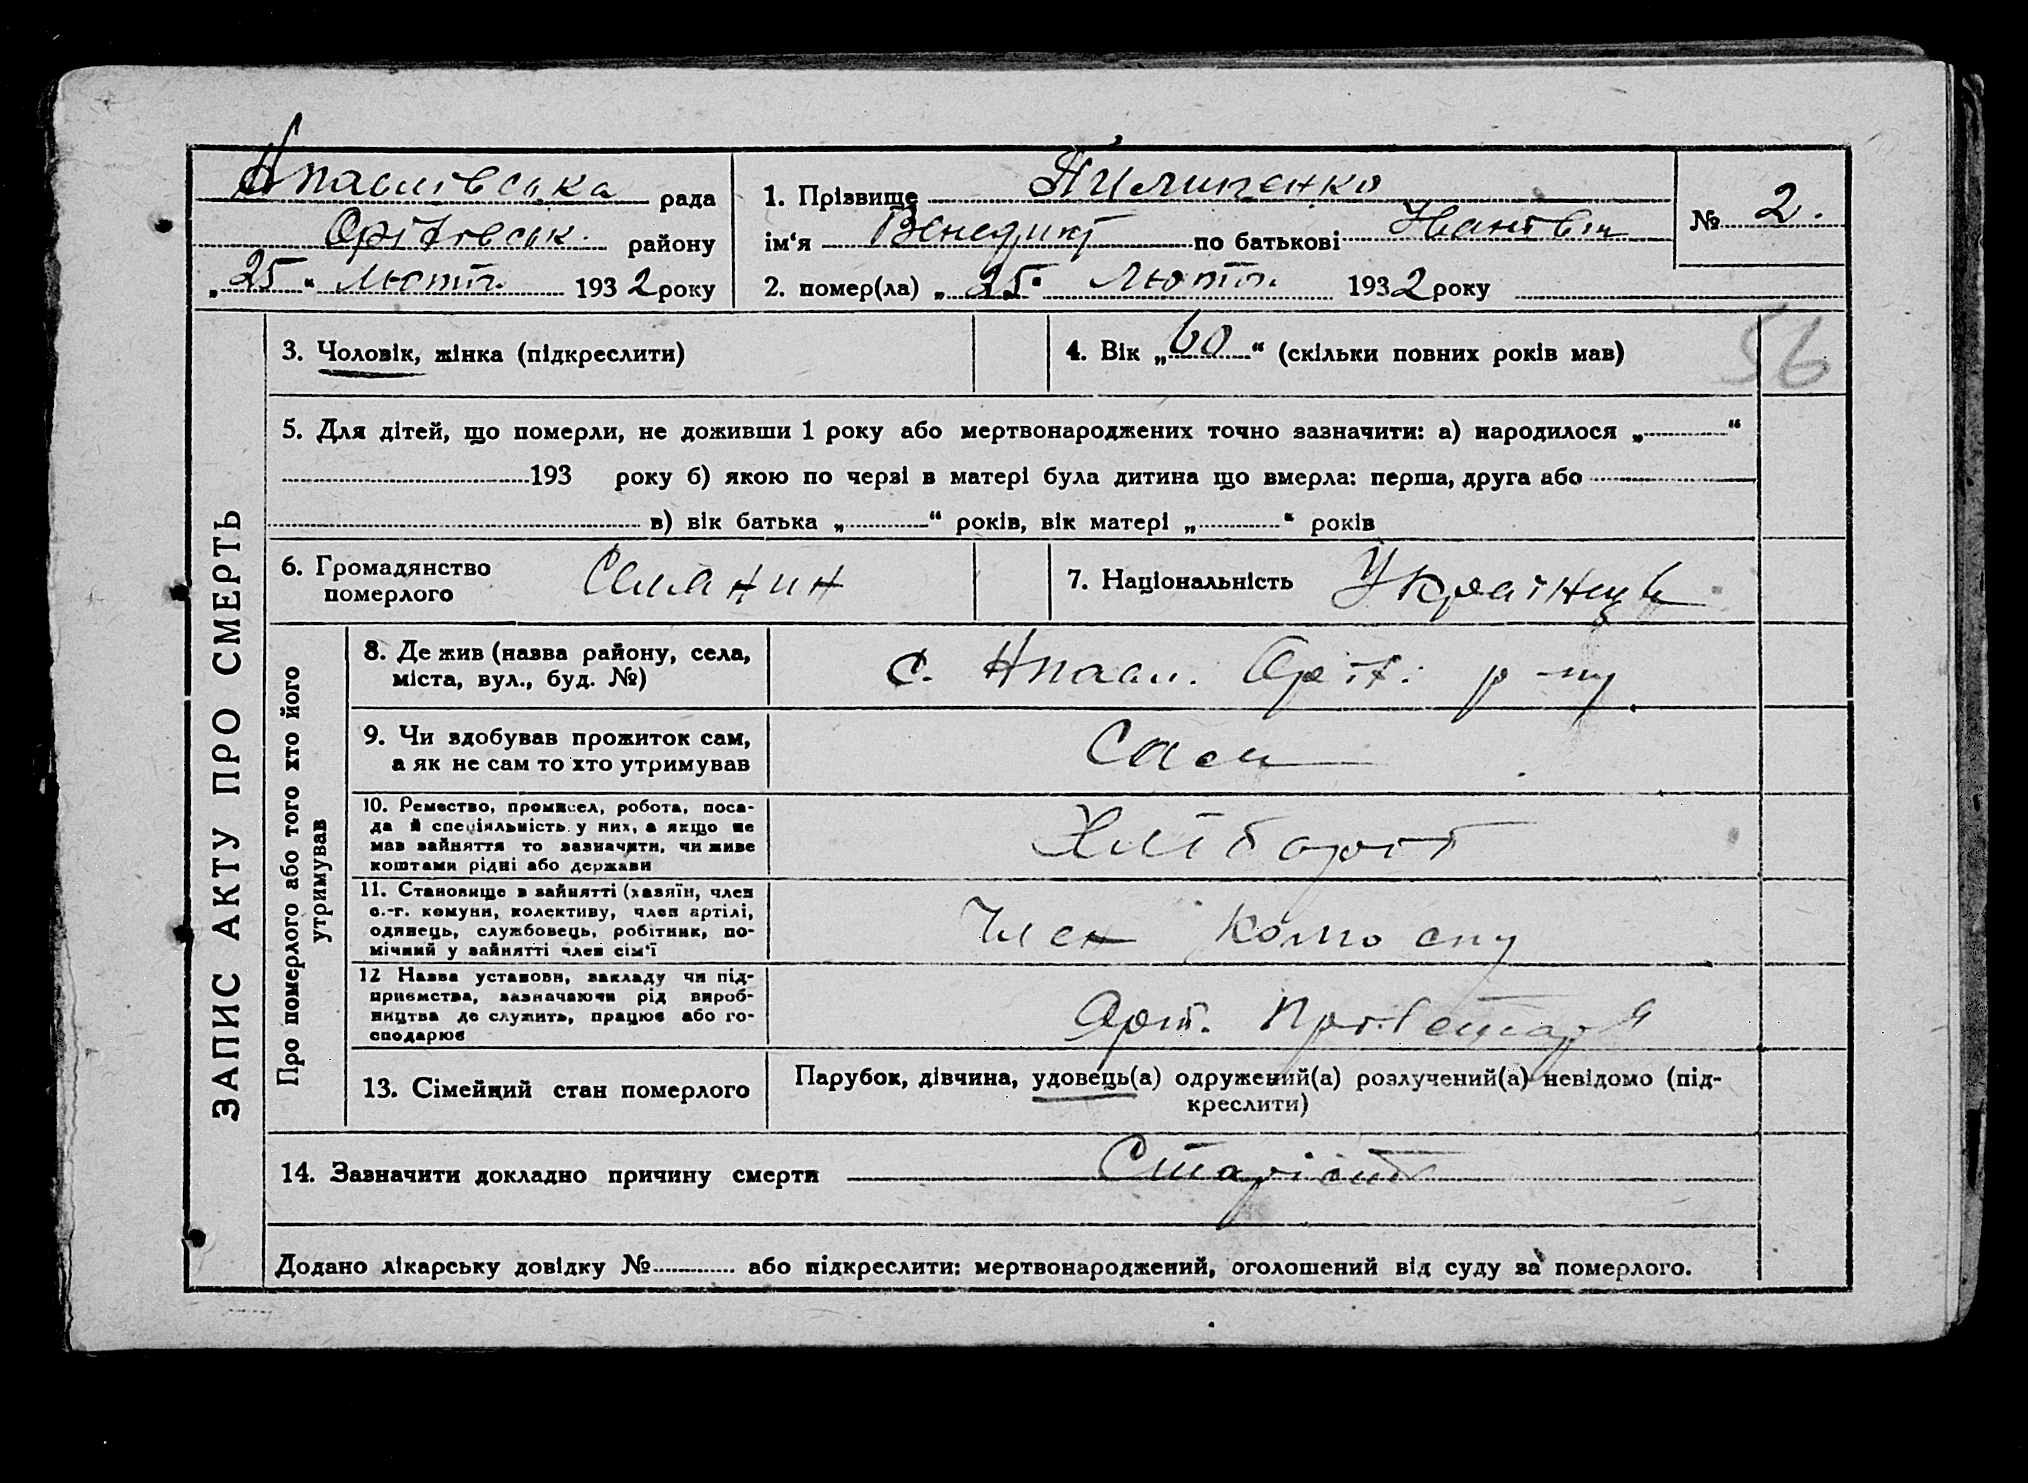 Апаслівська рада
Оріхівськ. району
„25“ лютого 1932 року
1. Прізвище Пилипенко
ім‘я Венедикт по батькові Іванович
2. помер(ла) „25“ лютого 1932 року
№ 2.
3. Чоловік, жінка (підкреслити)
4. Вік „60“ (скільки повних років мав)
56
5. Для дітей, що померли, не доживши 1 року або мертвонароджених точно зазначити: а) народилося „ “
193 року б) якою по черзі в матері була дитина що вмерла: перша, друга або
в) вік батька „ “ років, вік матері „ “ років
6. Громадянство
померлого
Селянин
7. Національність Українець
ЗАПИС АКТУ ПРО СМЕРТЬ
Про померлого або того хто його
утримував
8. Де жив (назва району, села,
міста, вул., буд. №)
с. Апасл. Оріх. р-ну
9. Чи здобував прожиток сам,
а як не сам то хто утримував
Сам
10. Ремество, промисел, робота, поса-
да й спеціяльність у них, а якщо не
мав зайняття то зазначити, чи живе
коштами рідні або держави
Хлібороб
11. Становище в зайнятті (хазяїн, член
с.-г. комуни, колективу, член артілі,
одинець, службовець, робітник, по-
мічний у зайнятті член сім‘ї
Член
12 Назва установи, закладу чи під-
приємства, зазначаючи рід вироб-
ництва де служить, працює або го-
сподарює
Арт.
13. Сімейний стан померлого
Парубок, дівчина, удовець(а) одружений(а) розлучений(а) невідомо (під-
креслити)
14. Зазначити докладно причину смерти Старість
Додано лікарську довідку № або підкреслити: мертвонароджений, оголошений від суду за померлого.